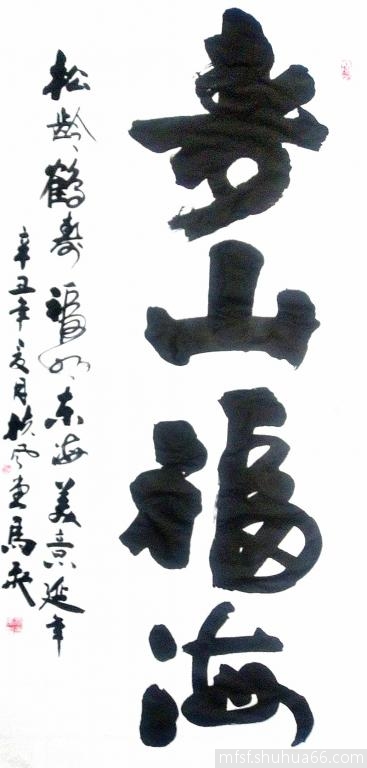 寿山福海
松龄鹤寿福如东海美意延年
辛丑年夏月扶风堂马
mfsf.shuhua66.com